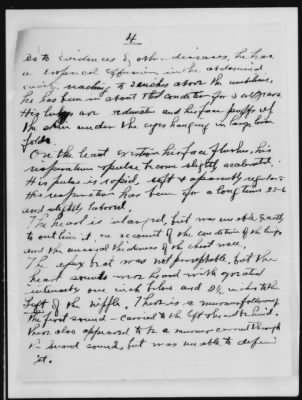 4
As to evidences of other diseases, he has
a tropical effusion in the abdominal
cavity, reaching to 3 inches above the umbilicus,
he has been in about this condition for 3 or 4 years
His legs are edematous and his face puffs at
the skin under the eyes hanging in large loose
folds.
On the least exertion his face flushes, his
respiration & pulse become slightly accelerated.
His pulse is rapid, soft & apparently regular.
His respiration has been for a long time 35-6
and slightly labored.
The heart is enlarged, but was unable exactly
to outline it, on account of the condition of the lungs
and the unusual thickness of the chest wall.
The apex beat was not perceptable, but the
heart sounds were heard with greatest
intensity one inch below and 2½ inches to the
Left of the nipple. There is a murmur following
the first sound - carried to the left & heard behind.
There also appeared to be a murmur carried through
the second sound, but was unable to define
it.